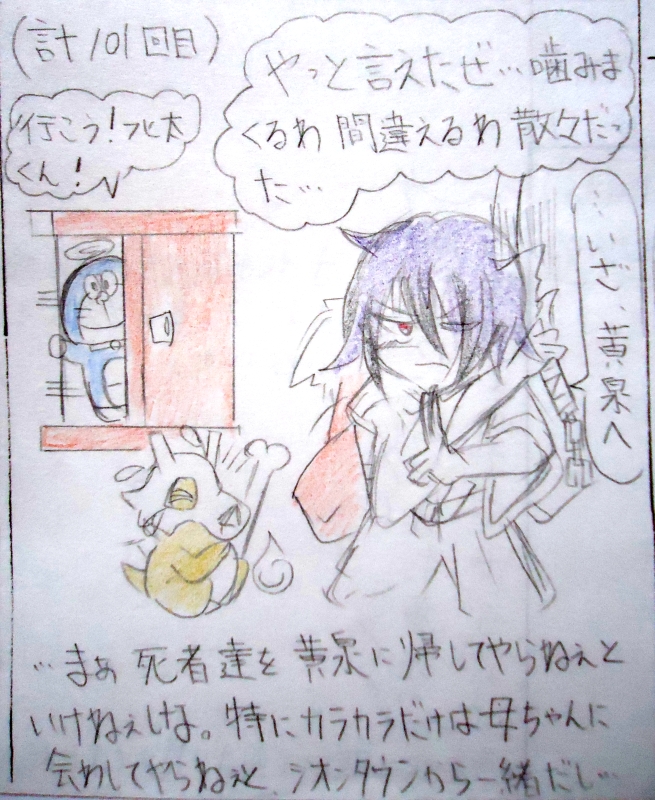 (計101回目)
やっと言えたぜ…噛みま
くるわ 間違えるわ 散々だっ
た…
行こう!フルル太
くん!
…いざ、黄泉へ
…まぁ 死者達を 黄泉に帰してやらねぇと
いけねぇしな。特にカラカラだけは母ちゃんに
会わしてやらねぇと、シオンタウンから一緒だし…